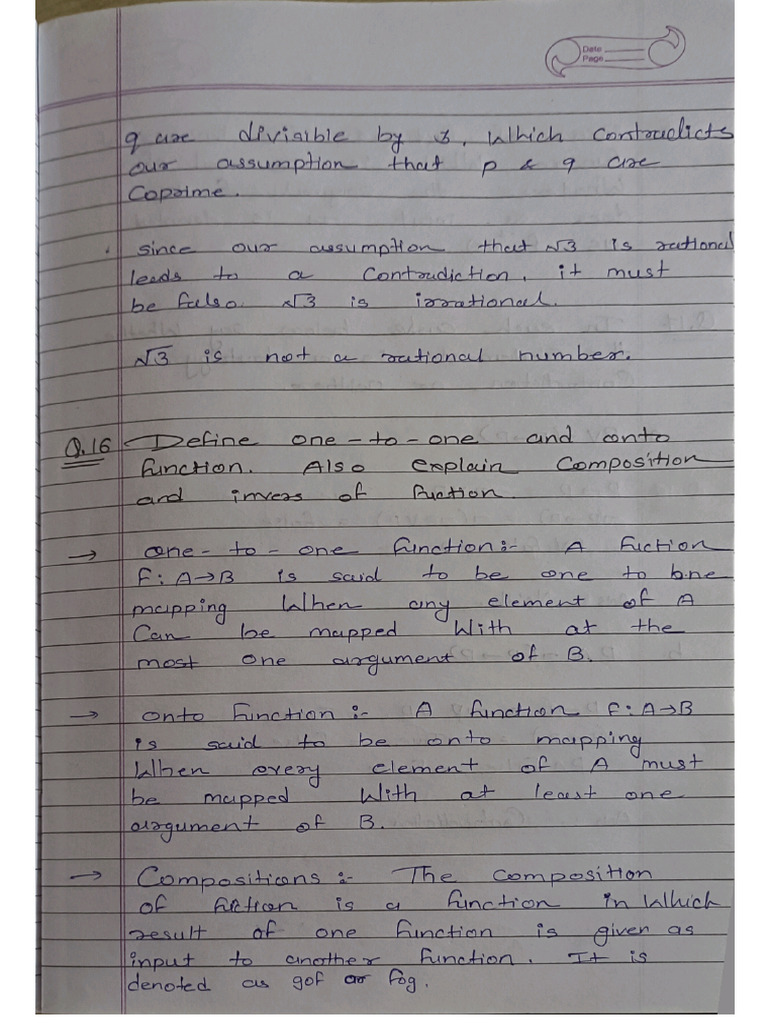 Date
Page
q are divisible by 3, which contradicts
our assumption that p & q are
Coprime.
since our assumption that √3 is rational
leads to a contradiction, it must
be falso. √3 is irrational.
√3 is not a rational number.
Q.16 Define one-to-one and onto
function. Also explain composition
and invers of fuction.
→ one-to-one function:- A fuction
f: A→B is said to be one to one
mapping when any element of A
Can be mapped with at the
most one argument of B.
→ onto function:- A function f: A→B
is said to be onto mapping
When every element of A must
be mapped with at least one
argument of B.
→ Compositions:- The composition
of fuction is a function in which
result of one function is given as
input to another function. It is
denoted as gof or fog.